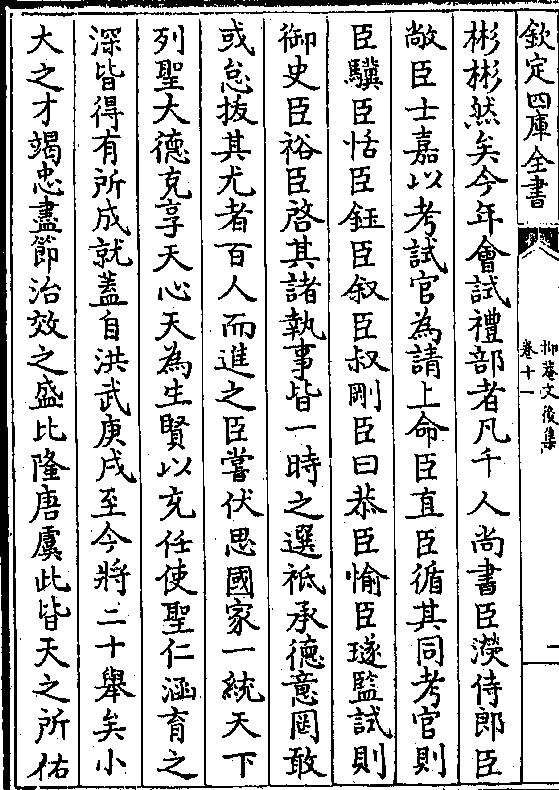 欽定四庫全書
抑菴文後集
卷十一
彬彬然矣今年會試禮部者凡千人尚書臣濙侍郎臣
敞臣士嘉以考試官為請上命臣直臣循其同考官則
臣驥臣恬臣鈺臣叙臣叔剛臣曰恭臣愉臣璲監試則
御史臣裕臣啓其諸執事皆一時之選祗承德意罔敢
或怠抜其尤者百人而進之臣嘗伏思國家一統天下
列聖大德克享天心天為生賢以充任使聖仁涵育之
深皆得有所成就蓋自洪武庚戌至今將二十舉矣小
大之才竭忠盡節治效之盛比隆唐虞此皆天之所佑